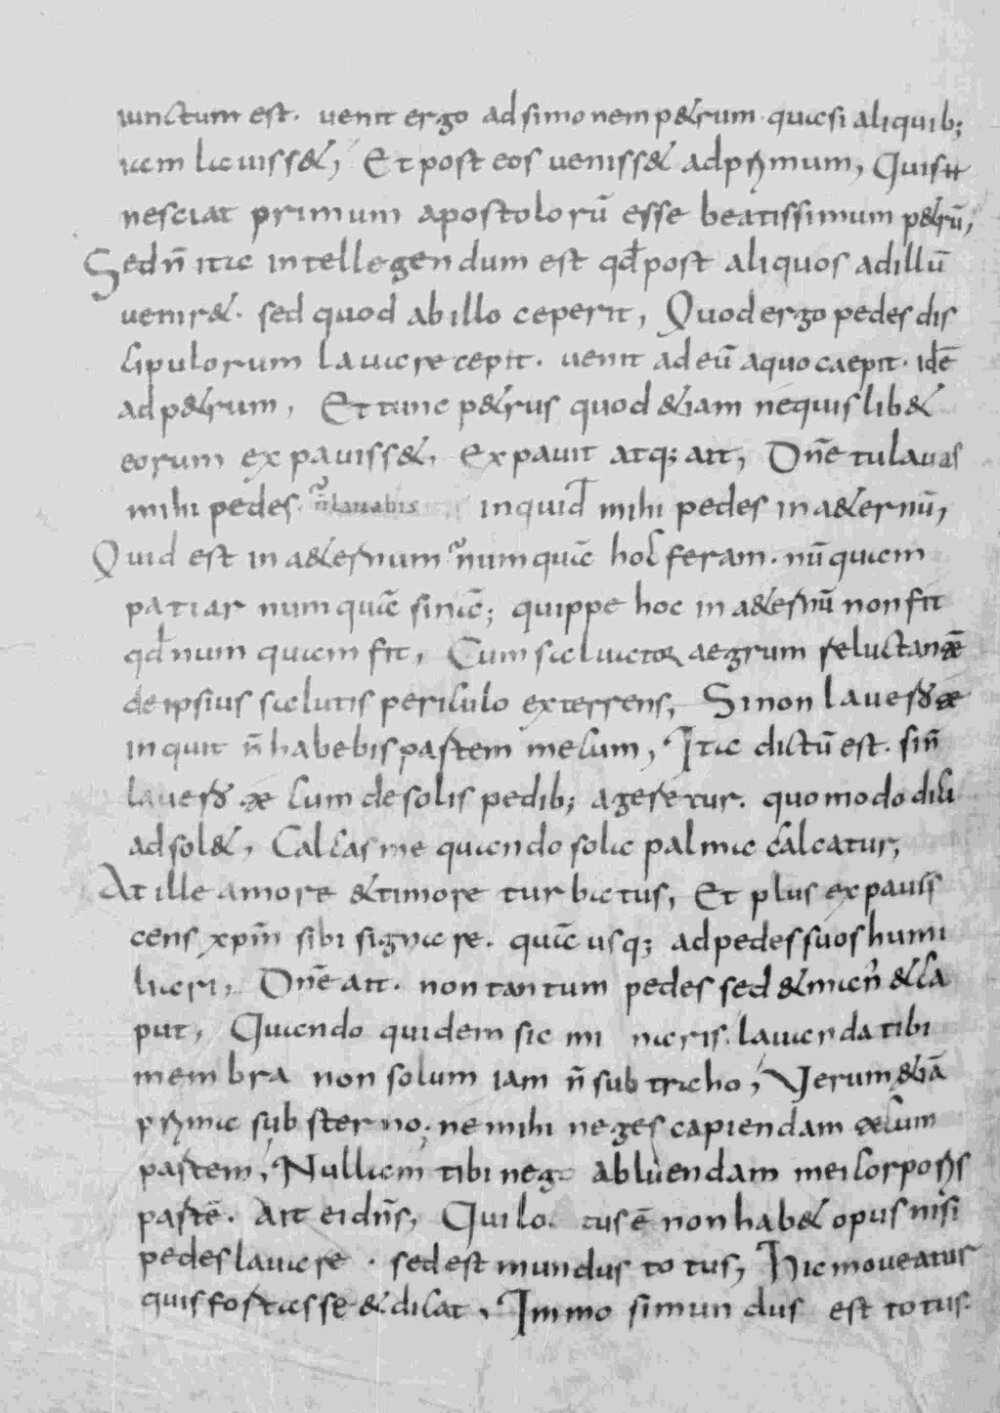 iunctum est. uenit ergo ad simonem p&rum quasi aliquib;
iam lauiss&, Et post eos ueniss& ad primum, Quis n̄
nesciat primum apostolorū esse beatissimum p&rū,
Sed n̄ ita intellegendum est qd̄ post aliquos ad illū
uenir&. sed quod ab illo ceperit, Quod ergo pedes dis
cipulorum lauare cepit. uenit ad eū a quo caepit. idē
ad p&rum, Et tunc p&rus quod &iam nequis lib&
eorum expauiss&, expauit atq; ait, Dn̄e tu lauas
mihi pedes. n̄ lauabis inquid mihi pedes in a&ernū,
Quid est in a&ernum numquā hoc feram. nūquam
patiar numquā sinā; quippe hoc in a&ernū non fit
qd̄ numquam fit, Cum saluator aegrum reluctantē
de ipsius salutis periculo exterrens, Si non lauero te
inquit n̄ habebis partem mecum, Ita dictū est. si n̄
lauero te cum de solis pedib; ageretur. quomodo dici
ad sol&, Calcas me quando sola palma calcatur,
At ille amore &timore turbatus, Et plus expauis
cens xp̄m sibi signare. quā usq; ad pedes suos humi
liari, Dn̄e ait. non tantum pedes sed &man &ca
put, Quando quidem sic mi naris. lauanda tibi
membra non solum iam n̄ subtraho, Verum &iā
prima substerno; ne mihi neges capiendam tecum
partem, Nullam tibi nego abluendam mei corporis
partē. Ait ei dn̄s, Qui lo tus ē non hab& opus nisi
pedes lauare. sed est mundus totus, Hic moueatur
quis fortasse &dicat, Immo si mundus est totus.